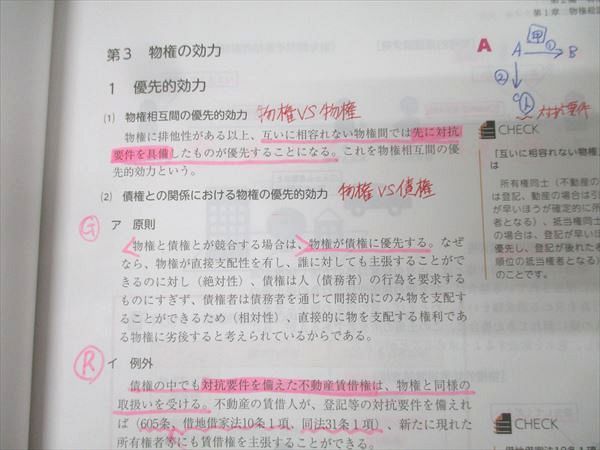 第1章 物権総
第3 物権の効力
A
A 甲 ① B
②
C
対抗要件
1 優先的効力
(1) 物権相互間の優先的効力 物権VS物権
物権に排他性がある以上、互いに相容れない物権間では先に対抗
要件を具備したものが優先することになる。これを物権相互間の優
先的効力という。
(2) 債権との関係における物権の優先的効力 物権VS債権
G ア 原則
物権と債権とが競合する場合は、物権が債権に優先する。なぜ
なら、物権が直接支配性を有し、誰に対しても主張することがで
きるのに対し（絶対性）、債権は人（債務者）の行為を要求する
ものにすぎず、債権者は債務者を通じて間接的にのみ物を支配す
ることができるため（相対性）、直接的に物を支配する権利であ
る物権に劣後すると考えられているからである。
R イ 例外
債権の中でも対抗要件を備えた不動産賃借権は、物権と同様の
取扱いを受ける。不動産の賃借人が、登記等の対抗要件を備えれ
ば（605条、借地借家法10条1項、同法31条1項）、新たに現れた
所有権者等にも賃借権を主張することができる。
CHECK
「互いに相容れない物権」
は
所有権同士（不動産の
は登記、動産の場合は引
が早いほうが確定的に所
者となる）、抵当権同士
の場合は、登記が早い
優先し、登記が後れた者
順位の抵当権者となる）
のことです。
CHECK